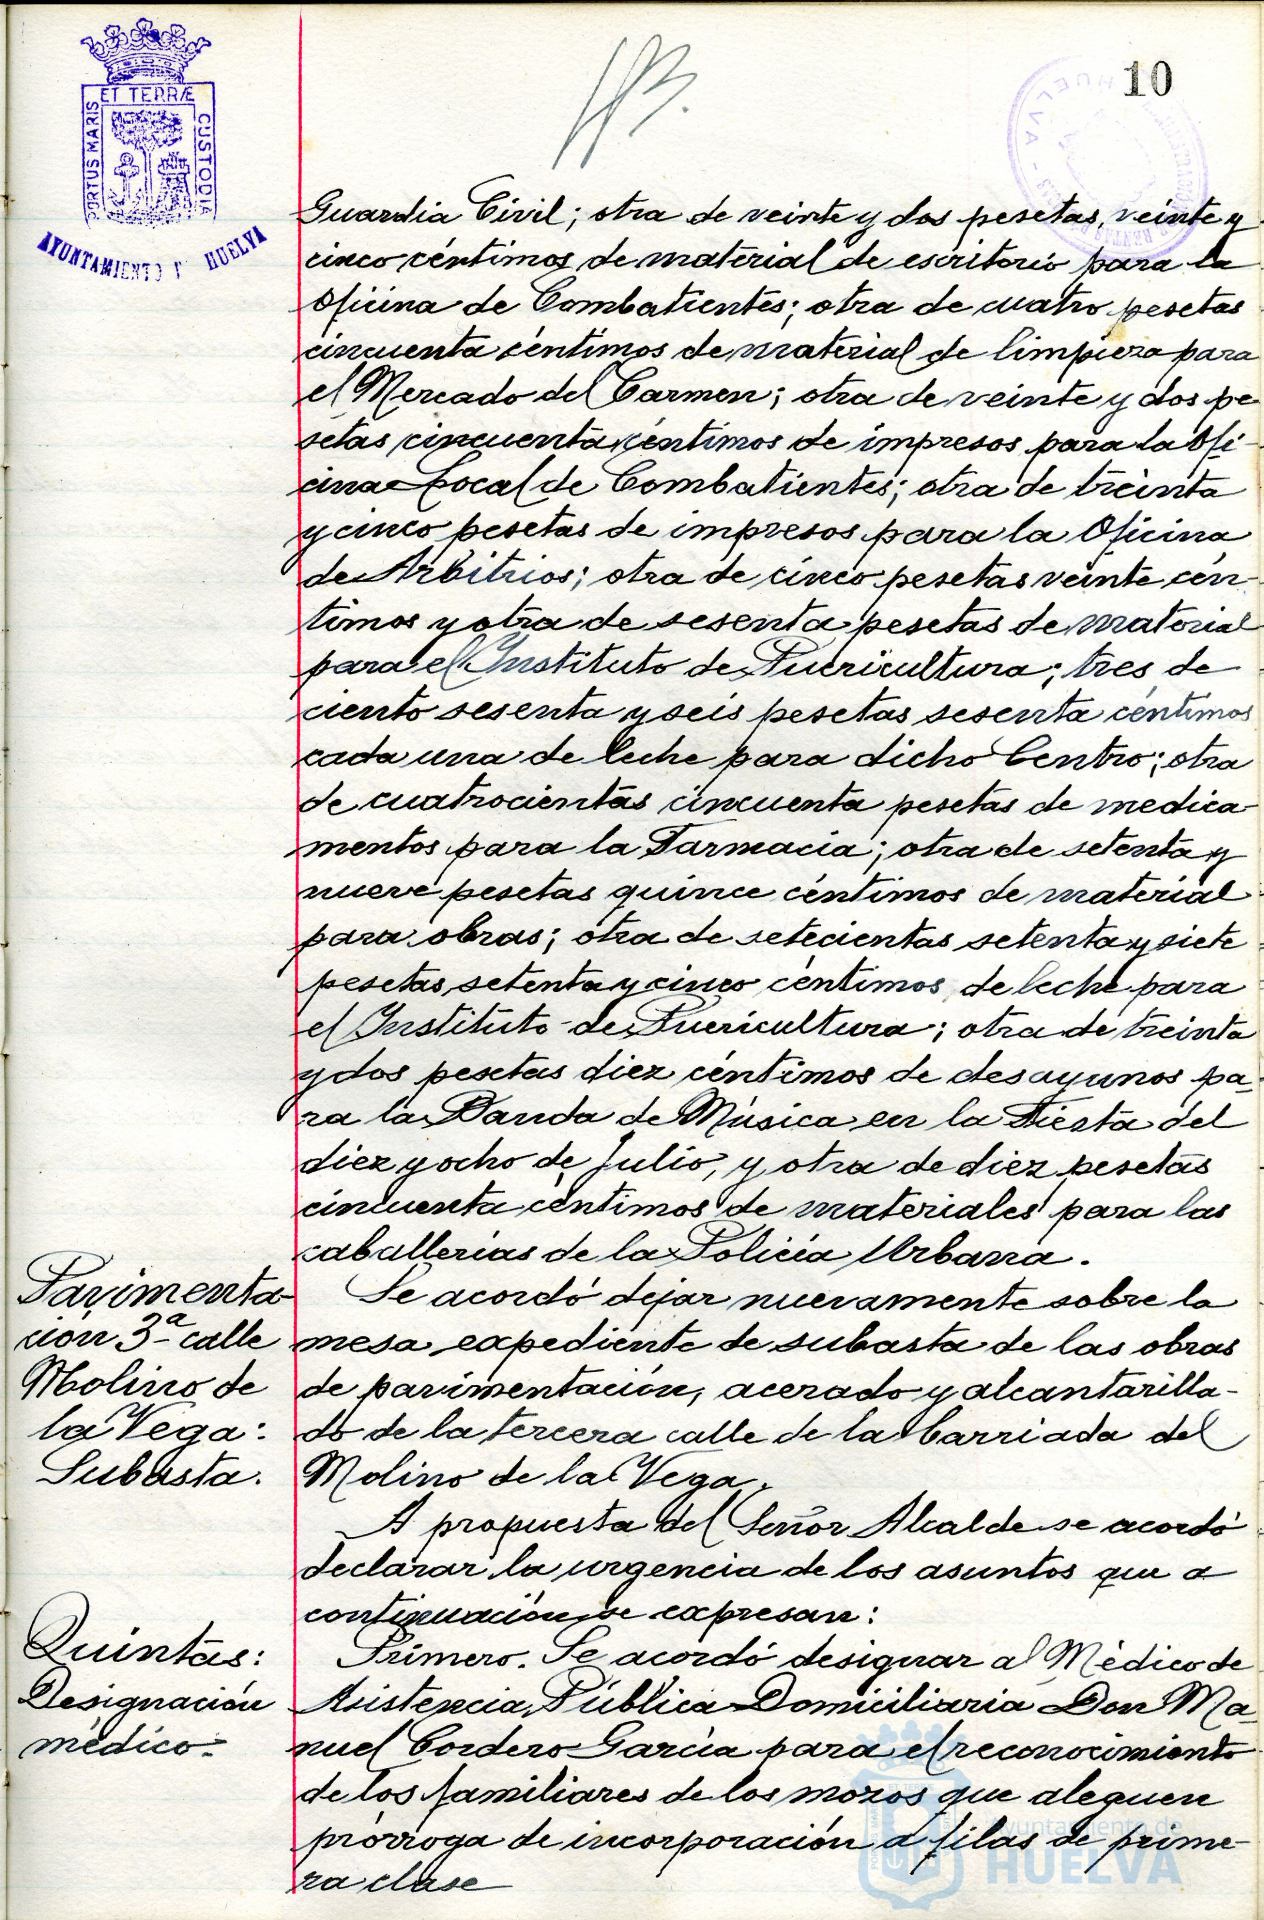 10
PORTUS MARIS
ET TERRÆ
CUSTODIA
AYUNTAMIENTO D HUELVA
HUELVA
Guardia Civil; otra de veinte y dos pesetas, veinte y
cinco céntimos de material de escritorio para la
Oficina de Combatientes; otra de cuatro pesetas
cincuenta céntimos de material de limpieza para
el Mercado del Carmen; otra de veinte y dos pe-
setas cincuenta céntimos de impresos para la Ofi-
cina Local de Combatientes; otra de treinta
y cinco pesetas de impresos para la Oficina
de Arbitrios; otra de cinco pesetas veinte cén-
timos y otra de sesenta pesetas de material
para el Instituto de Puericultura; tres de
ciento sesenta y seis pesetas sesenta céntimos
cada una de leche para dicho Centro; otra
de cuatrocientas cincuenta pesetas de medica-
mentos para la Farmacia; otra de setenta y
nueve pesetas quince céntimos de material
para obras; otra de setecientas setenta y siete
pesetas, setenta y cinco céntimos, de leche para
el Instituto de Puericultura; otra de treinta
y dos pesetas diez céntimos de desayunos pa-
ra la Banda de Música en la Fiesta del
diez y ocho de Julio, y otra de diez pesetas
cincuenta céntimos de materiales para las
caballerías de la Policía Urbana.
Pavimenta-
ción 3ª calle
Molino de
la Vega:
Subasta.
Se acordó dejar nuevamente sobre la
mesa expediente de subasta de las obras
de pavimentación, acerado y alcantarilla-
do de la tercera calle de la barriada del
Molino de la Vega.
A propuesta del Señor Alcalde se acordó
declarar la urgencia de los asuntos que a
continuación se expresan:
Quintas:
Designación
médico.
Primero. Se acordó designar al Médico de
Asistencia Pública Domiciliaria Don Ma-
nuel Cordero García para el reconocimiento
de los familiares de los mozos que aleguen
prórroga de incorporación a filas de prime-
ra clase
Ayuntamiento de
HUELVA